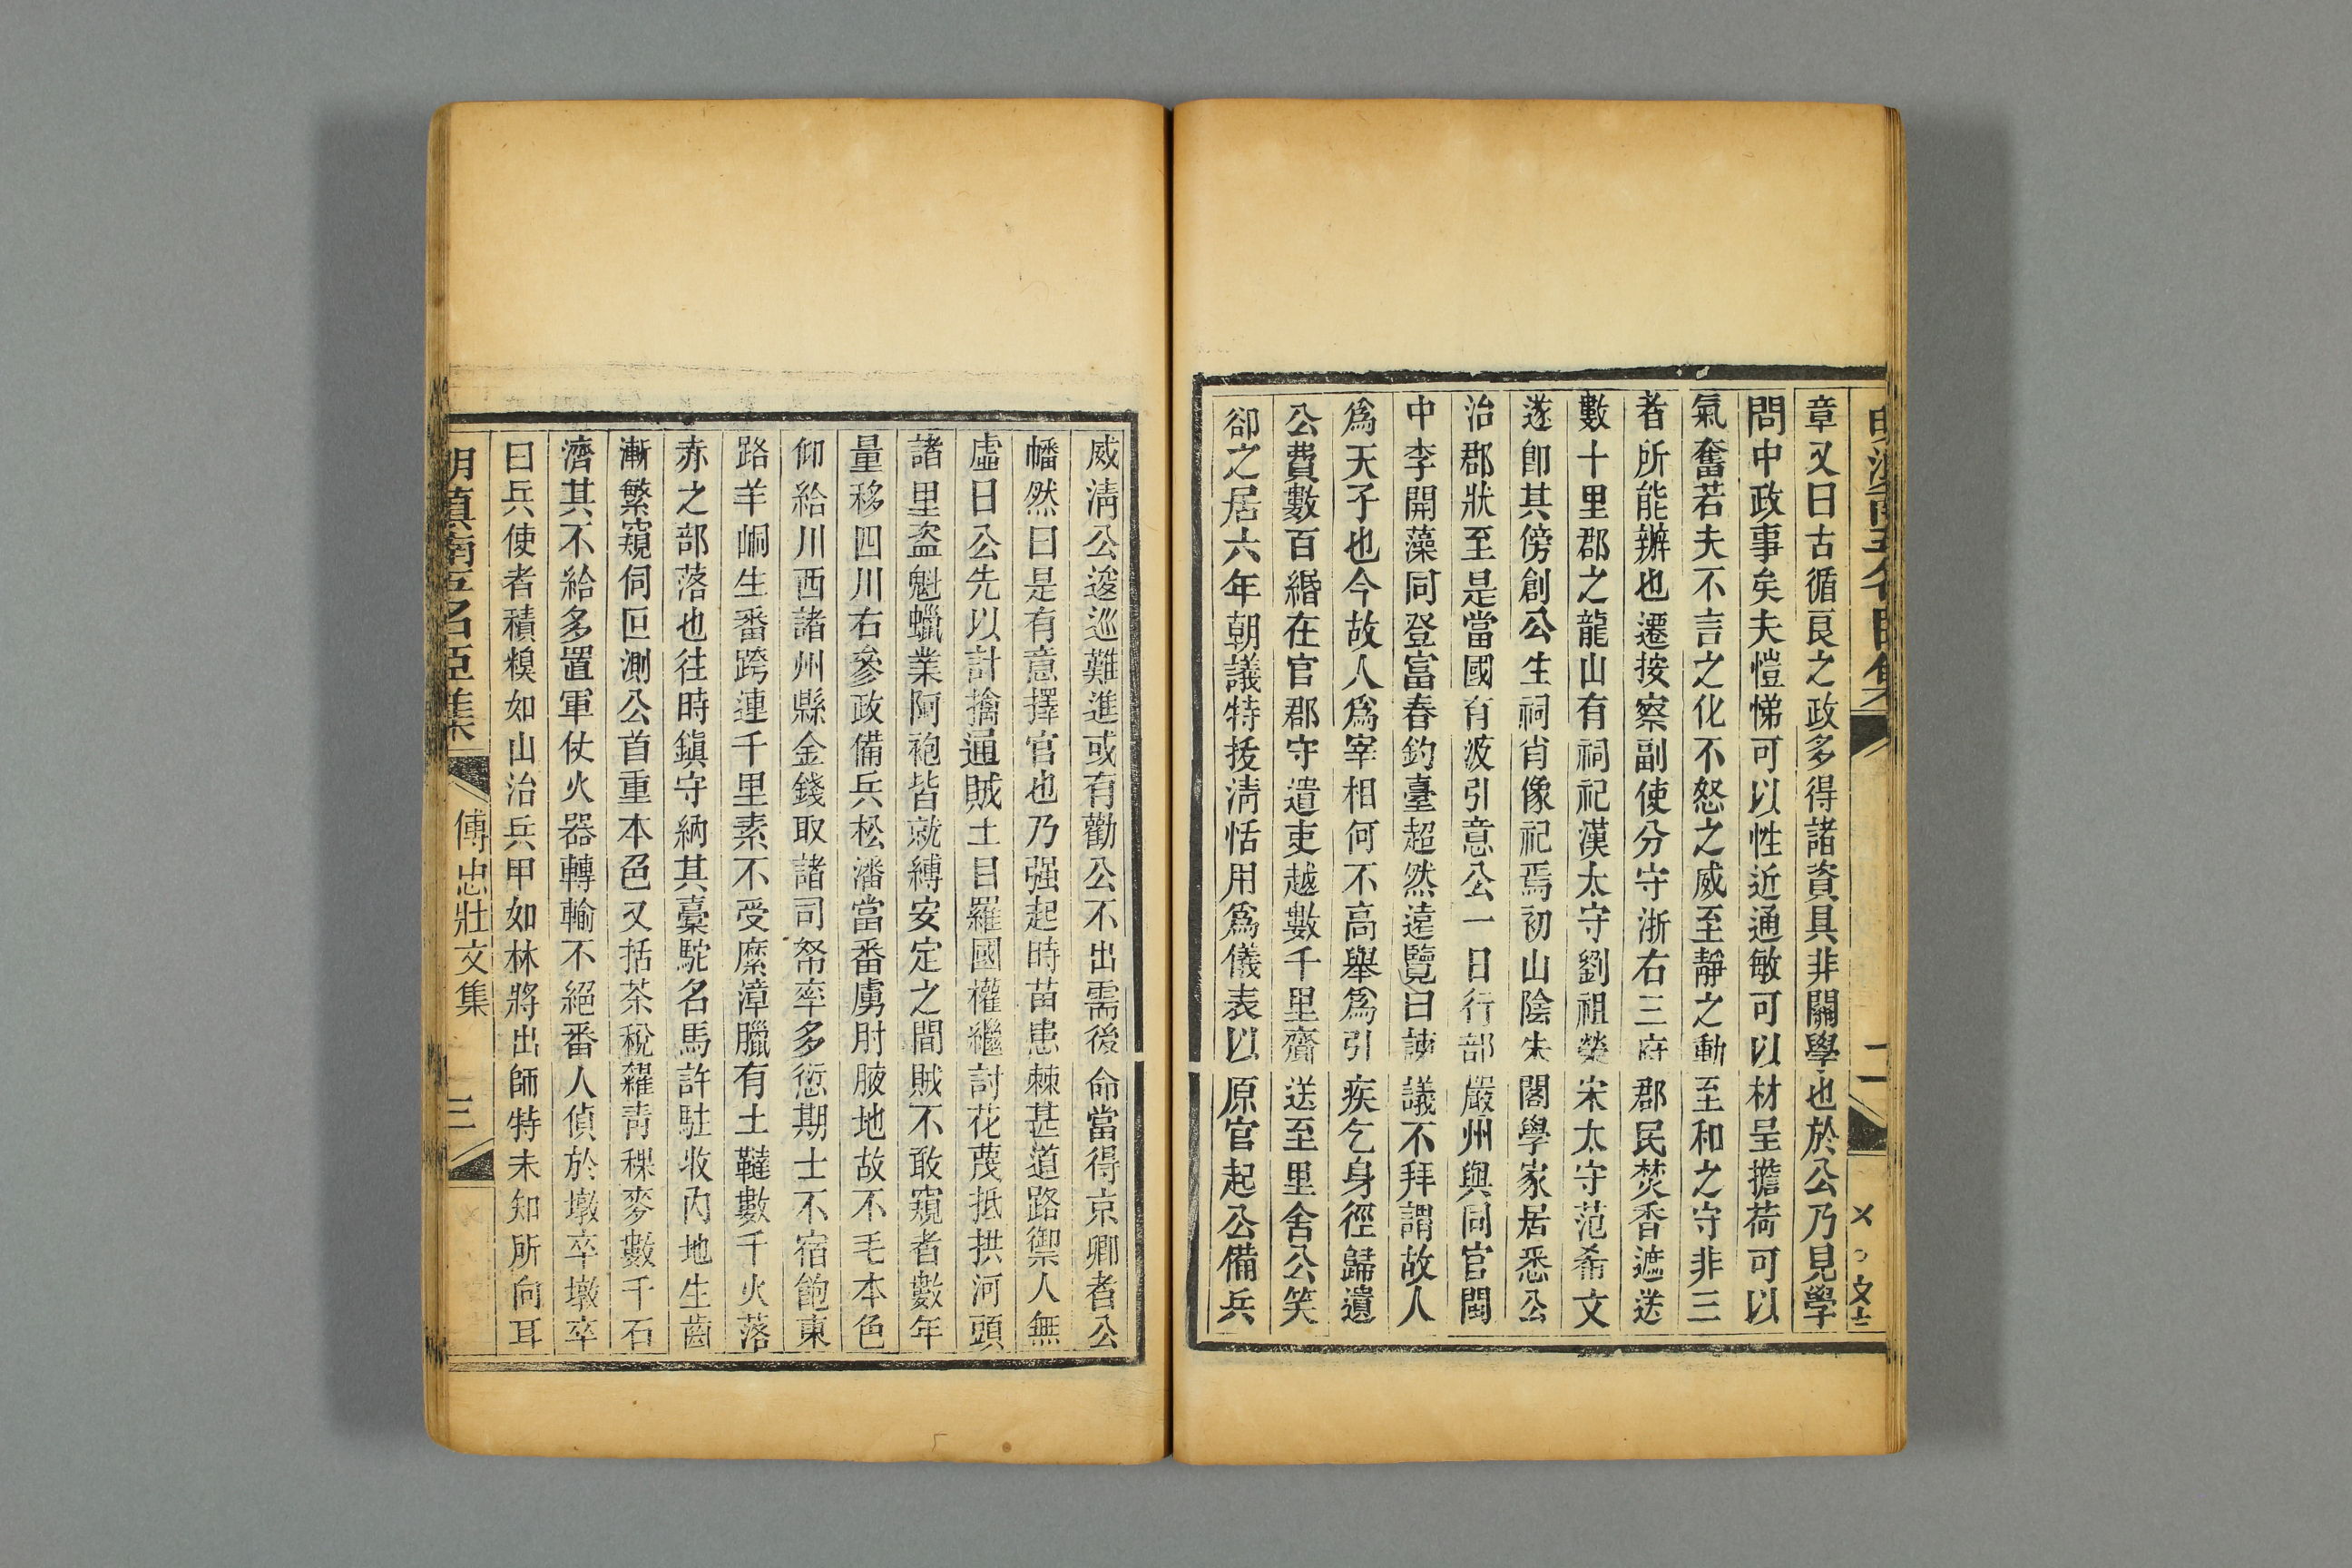 章又曰古循良之政多得諸資具非關學也於公乃見學
問中政事矣夫愷悌可以性近通敏可以材呈擔荷可以
氣奮若夫不言之化不怒之威至靜之動至和之守非三
者所能辦也遷按察副使分守浙右三府郡民焚香遮送
數十里郡之龍山有祠祀漢太守劉祖榮宋太守范希文
遂卽其傍創公生祠肖像祀焉初山陰朱閣學家居悉公
治郡狀至是當國有波引意公一日行部嚴州與同官閩
中李開藻同登富春釣臺超然遠覽曰諫議不拜謂故人
爲天子也今故人爲宰相何不高舉爲引疾乞身徑歸遺
公費數百緡在官郡守遣吏越數千里齎送至里舍公笑
卻之居六年朝議特拔淸恬用爲儀表以原官起公備兵
威淸公逡巡難進或有勸公不出需後命當得京卿者公
幡然曰是有意擇官也乃强起時苗患棘甚道路禦人無
虛日公先以計擒通賊土目羅國權繼討花蔑抵拱河頭
諸里盜魁蠟業阿袍皆就縛安定之間賊不敢窺者數年
量移四川右參政備兵松潘當番虜肘腋地故不毛本色
仰給川西諸州縣金錢取諸司帑率多愆期士不宿飽東
路羊峒生番跨連千里素不受縻漳臘有土韃數千火落
赤之部落也往時鎭守納其橐駝名馬許駐收內地生齒
漸繁窺伺叵測公首重本色又括茶稅糴靑稞麥數千石
濟其不給多置軍仗火器轉輸不絕番人偵於墩卒墩卒
曰兵使者積糗如山治兵甲如林將出師特未知所向耳
明滇南五名臣集
傅忠壯文集
三